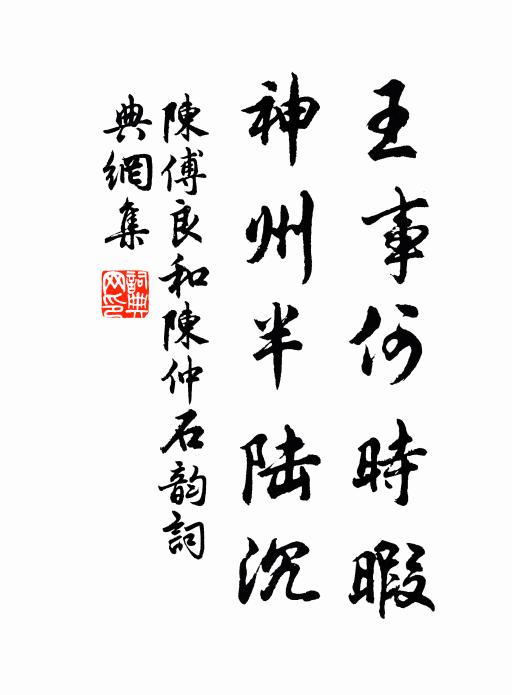 王事何時暇
神州半陆沉
陳傅良和陳仲石韵詞
典網集
詞典網印